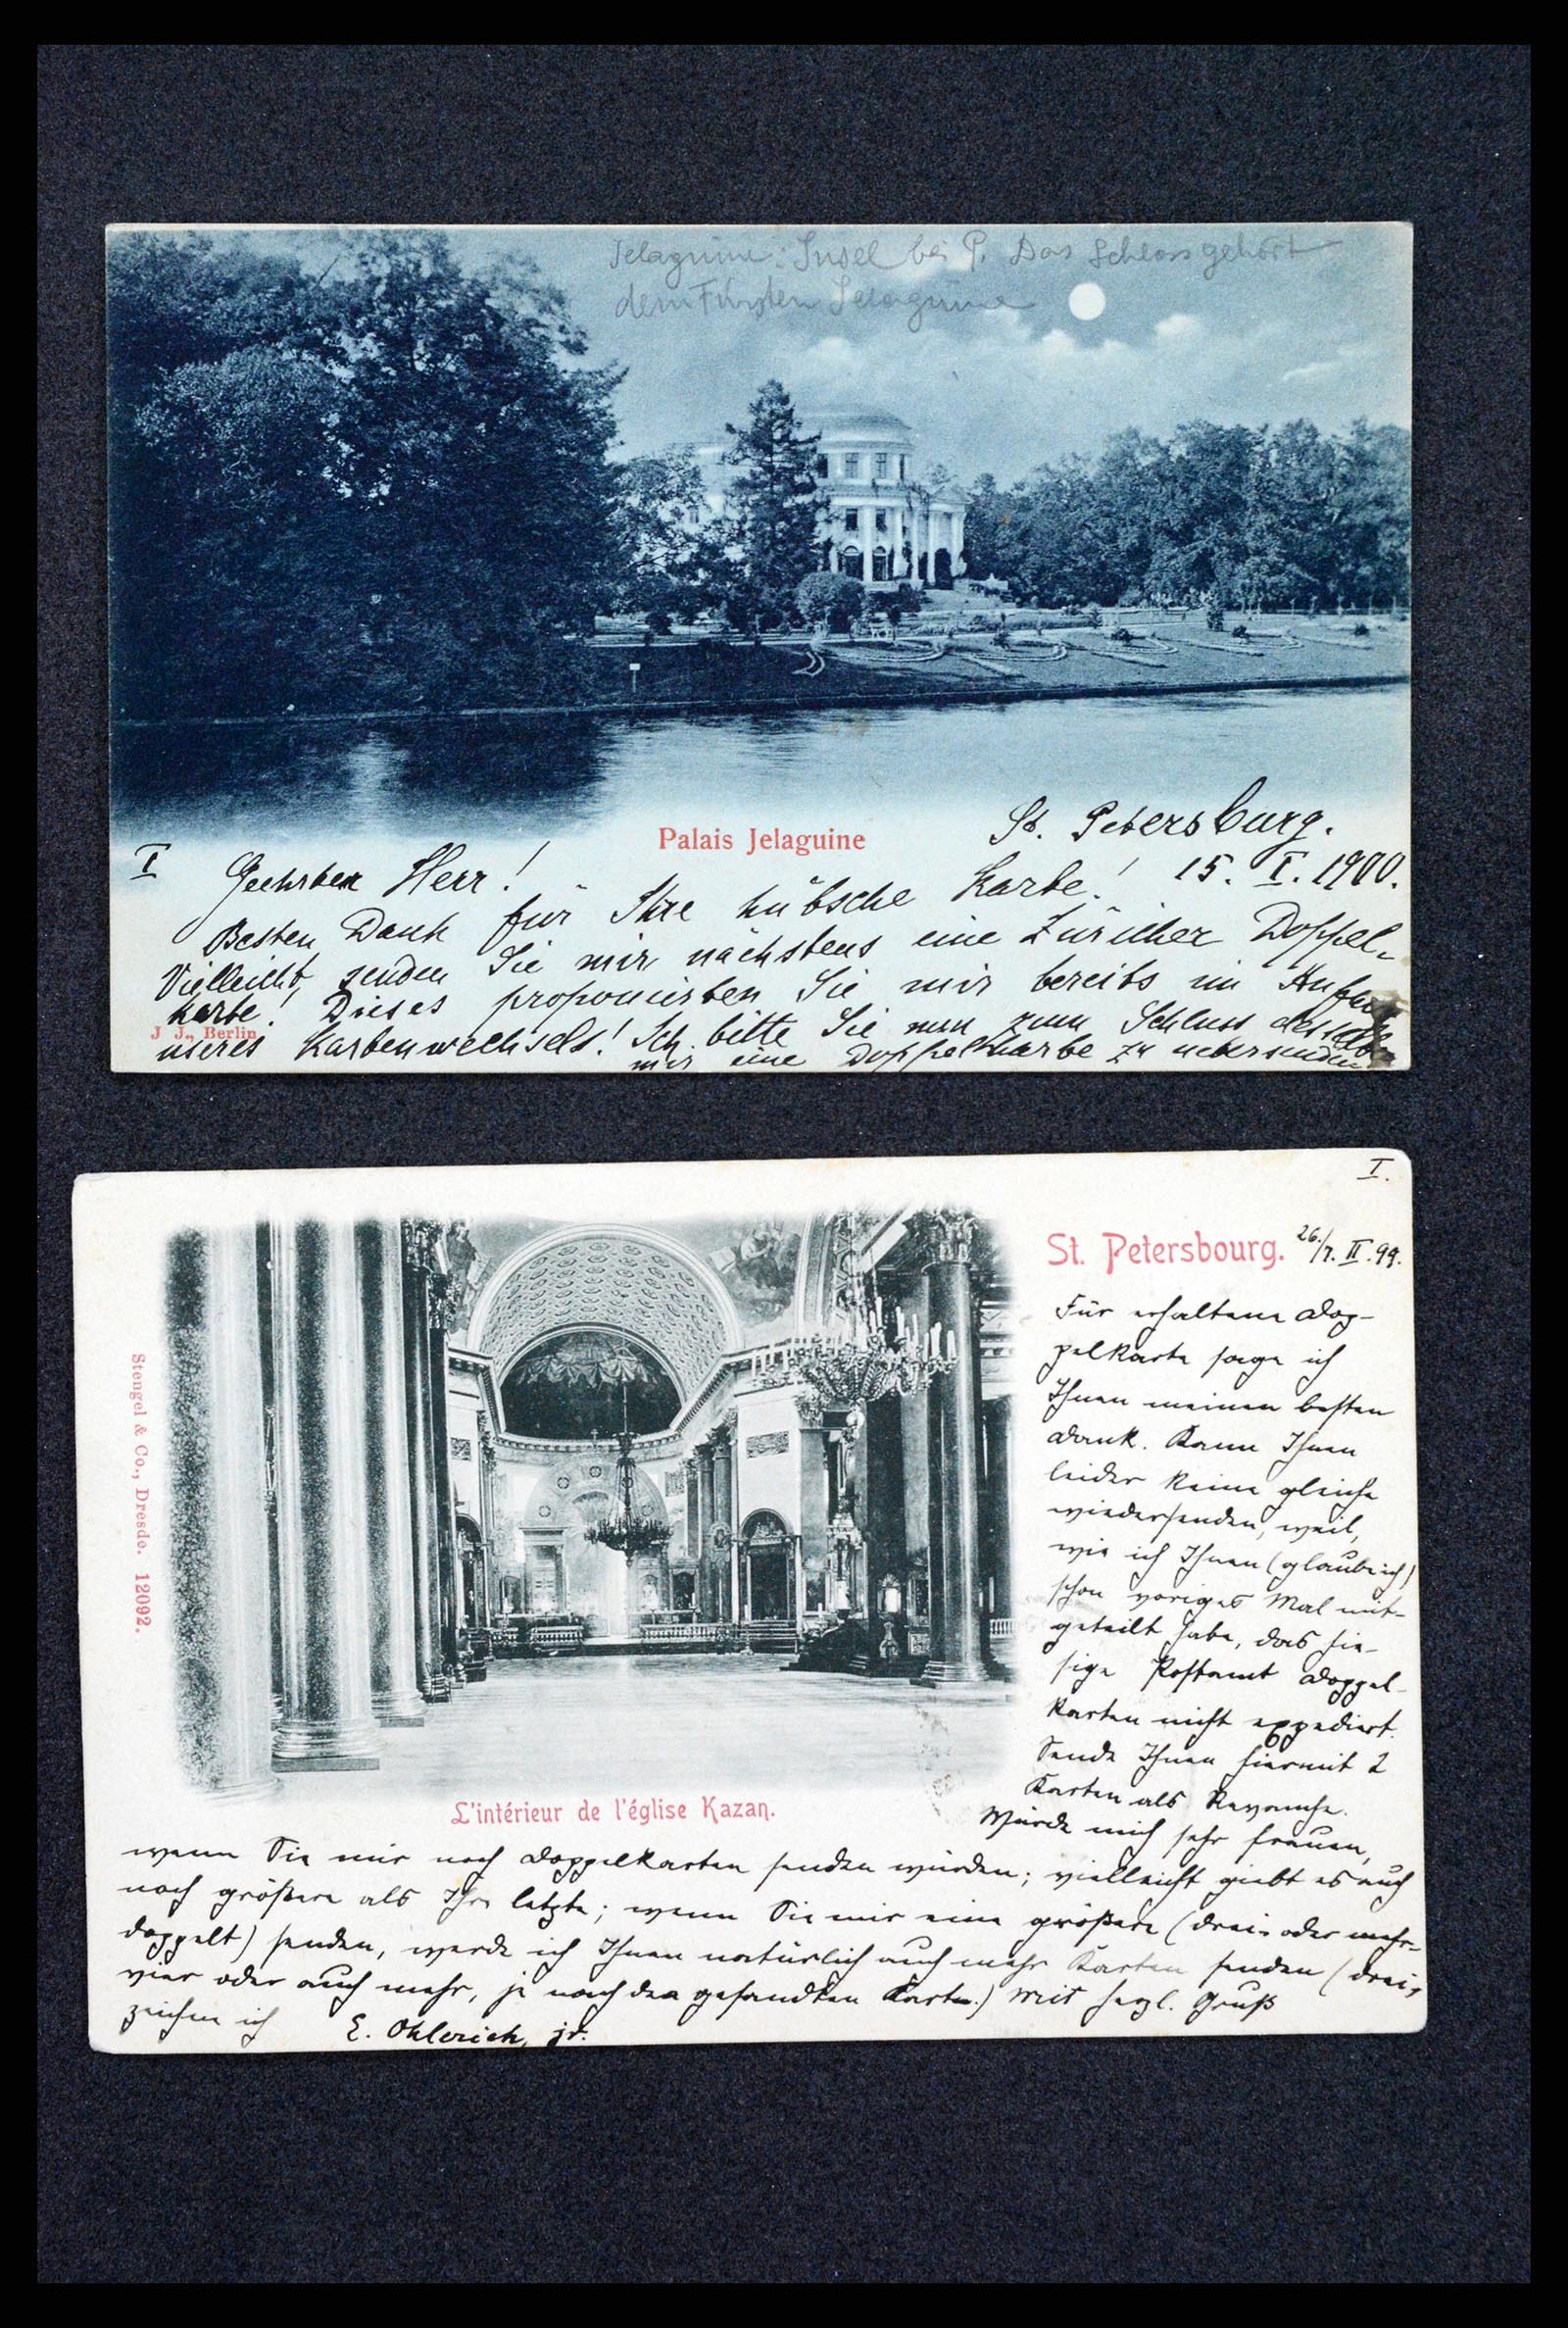 Jelaguine: Insel bei P. Das Schloss gehört
dem Fürsten Jelaguine
Palais Jelaguine
St. Petersburg.
15. I. 1900.
I
Geehrter Herr!
Besten Dank für Ihre hübsche Karte!
Vielleicht senden Sie mir nächstens eine Züricher Doppel-
karte! Dieses proponierten Sie mir bereits im
J. J., Berlin
unseres Kartenwechsels! Ich bitte Sie nun zum Schluss desselben
mir eine Doppelkarte zu uebersenden
I.
St. Petersbourg. 26./7. II. 99.
Für erhaltene Dop-
pelkarte sage ich
Ihnen meinen besten
Dank. Kann Ihnen
leider keine gleiche
wiedersenden, weil,
wie ich Ihnen (glaube ich)
schon voriges Mal mit-
geteilt habe, das hie-
sige Postamt Doppel-
karten nicht expediert.
Sende Ihnen hiermit 2
Karten als Revanche.
Würde mich sehr freuen,
Stengel & Co., Dresde. 12092.
L'intérieur de l'église Kazan.
wenn Sie mir noch Doppelkarten senden würden; vielleicht giebt es auch
noch größere als Ihre letzte; wenn Sie mir eine größere (drei- oder mehr-
doppelt) senden, werde ich Ihnen natürlich auch mehr Karten senden (drei,
vier oder auch mehr, je nach der gesandten Karte.) Mit herzl. Gruß
zeichne ich E. Ohlerich, jr.